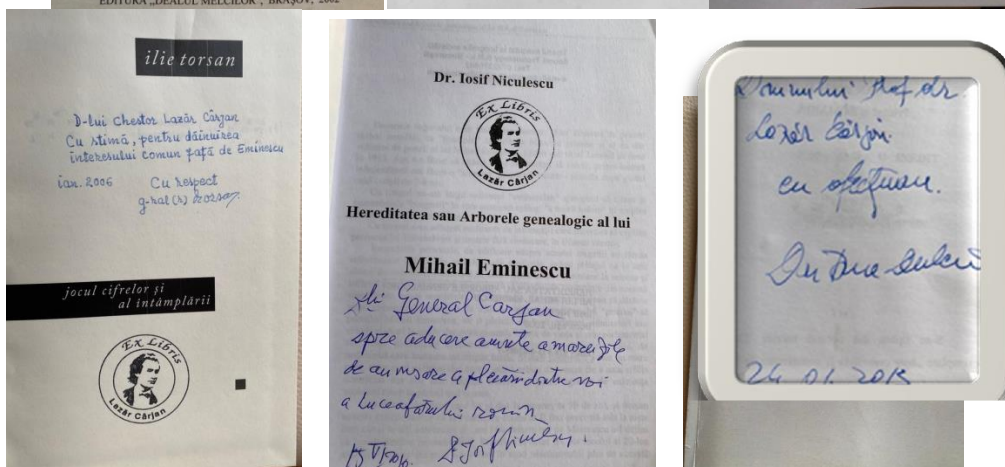 EDITURA „DEALUL MELCILOR”, BRAȘOV, 2002
ilie torsan
D-lui Chestor Lazăr Cârjan
Cu stimă, pentru dăinuirea
interesului comun față de Eminescu
ian. 2006 Cu respect
g-ral (r)
jocul cifrelor și
al întâmplării
Ex Libris
Lazăr Cârjan
Dr. Iosif Niculescu
Ex Libris
Lazăr Cârjan
Hereditatea sau Arborele genealogic al lui
Mihail Eminescu
General Carjan
spre aducere aminte a marei zile
de a plecării dintre noi
a Luceafărului român
Domnului Prof dr.
Lazăr Cârjan
cu afecțiune.
24 01 2015